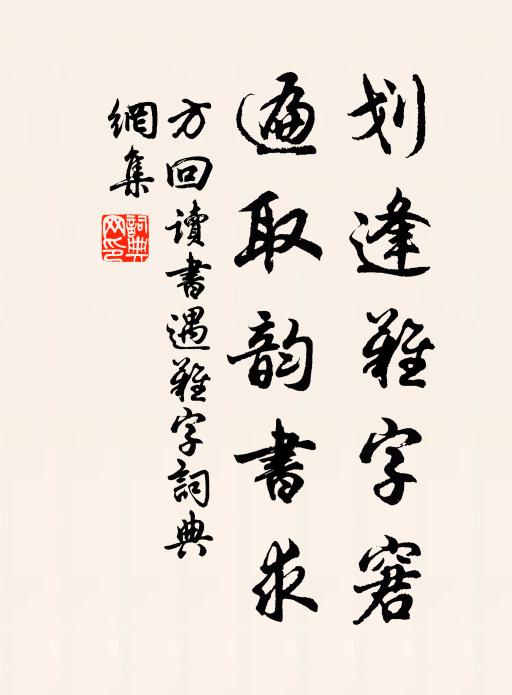 划逢難字窘
遍取韵書求
方回讀書遇難字詞典
網集
詞典
网印